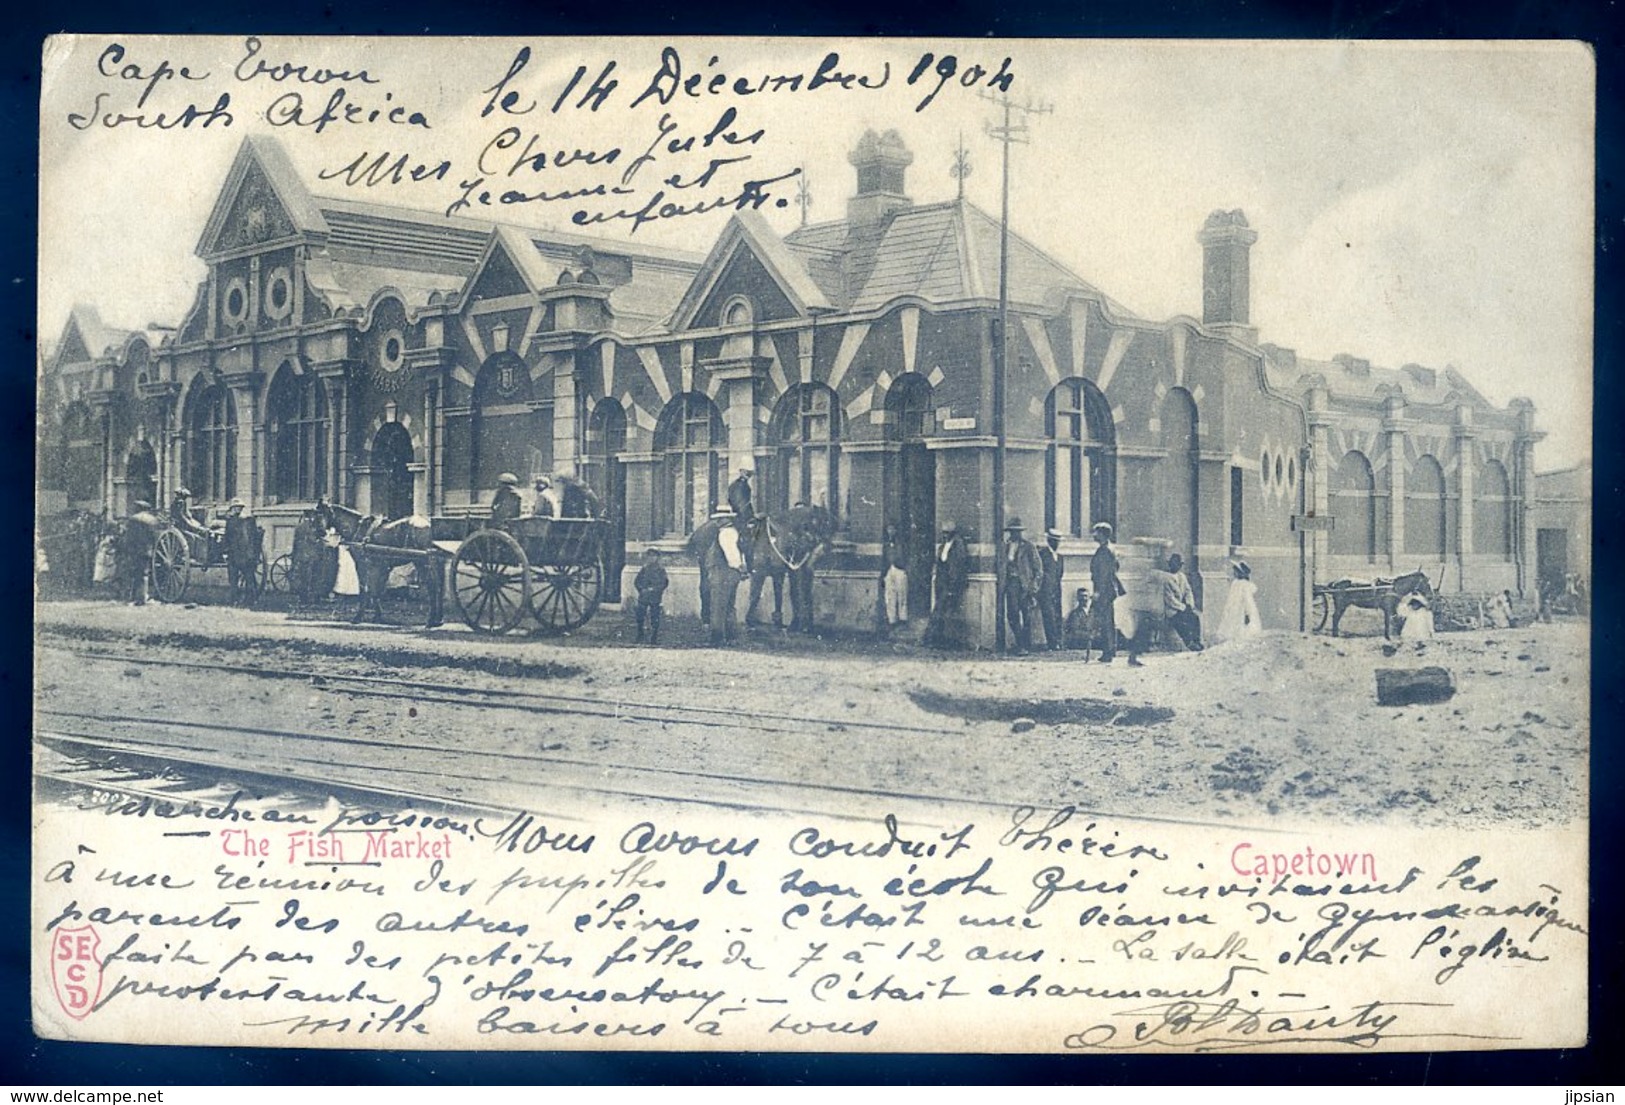 Cape Town
South Africa
le 14 Décembre 1904
Mes Chers Jules
Jeanne et
enfants.
marché au poisson.
The Fish Market
Capetown
Nous avons conduit Thérèse
à une réunion des pupilles de son école qui invitaient les
parents des autres élèves. - C'était une séance de gymnastique
faite par des petites filles de 7 à 12 ans. - La salle était l'église
protestante d'observatory. - C'était charmant. -
mille baisers à tous
Dauty
SE
C
D
delcampe.net
jipsian